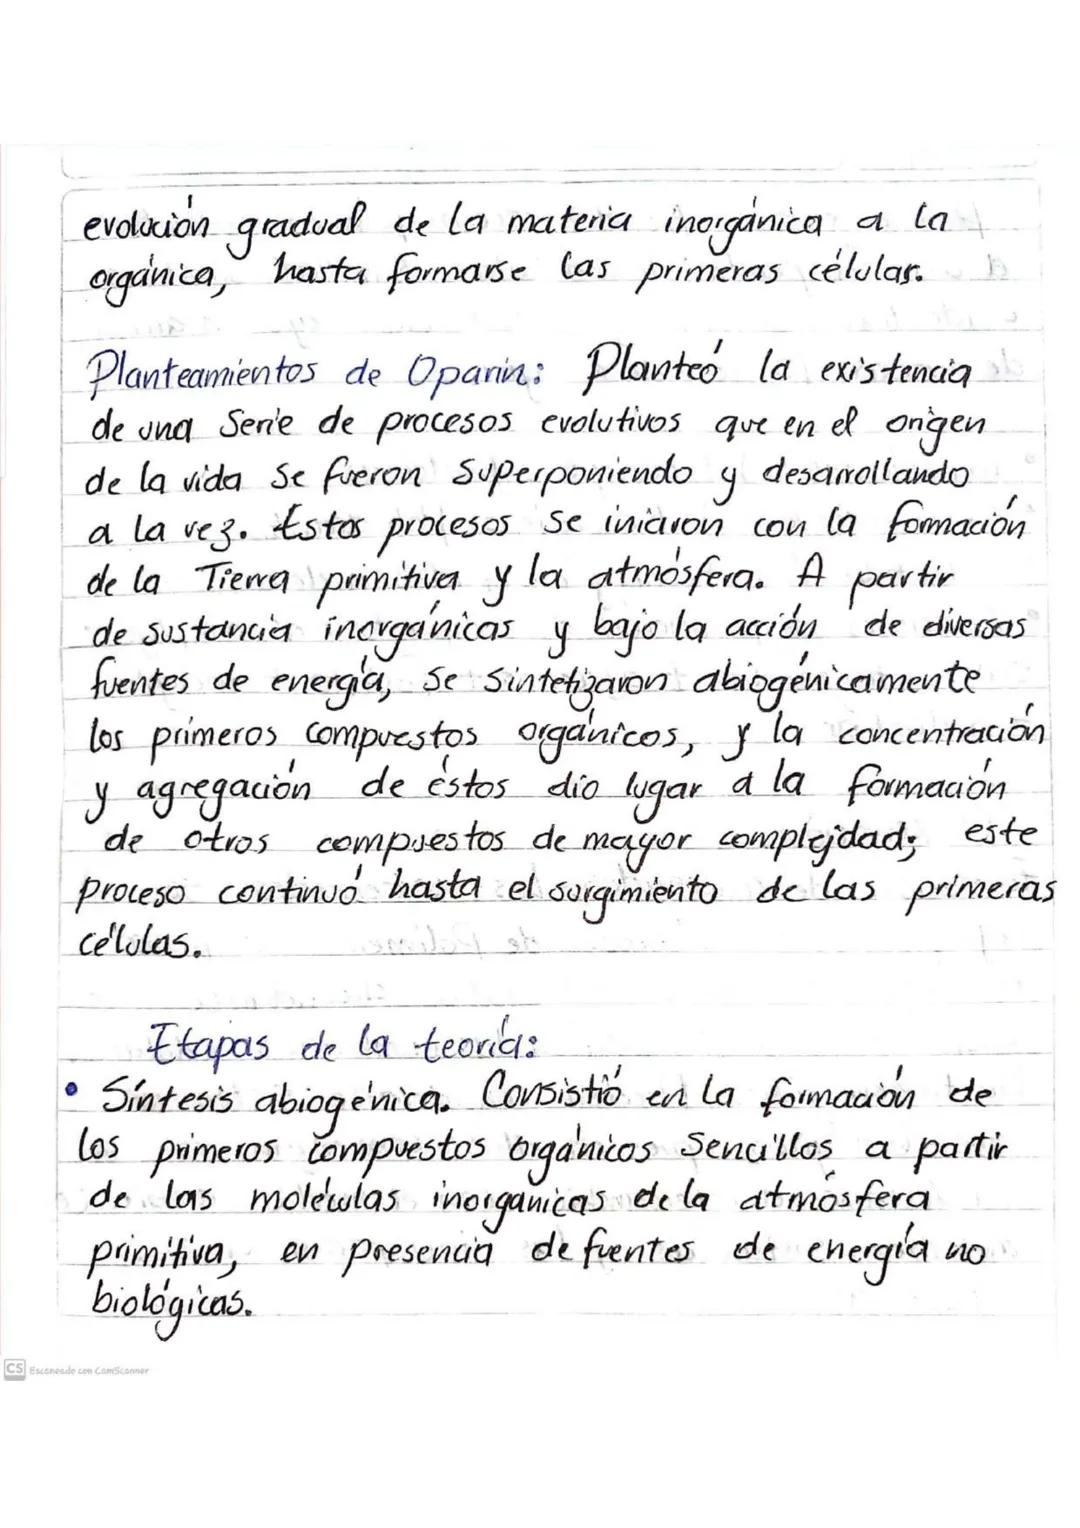 evolución gradual de la materia inorgánica a la
orgánica, hasta formarse las primeras célular.
Planteamientos de Oparin: Planteó la existencia
de una Serie de procesos evolutivos que en el origen
de la vida Se fueron Superponiendo y desarrollando
a la vez. Estos procesos se iniciaron con la formación
de la Tierra primitiva y la atmósfera. A partir
de sustancia inorgánicas y bajo la acción de diversas
fuentes de energía, se sintetizaron abiogénicamente
los primeros compuestos orgánicos, y la concentración
y agregación de éstos dio lugar a la formación
de otros compuestos de mayor complejidad; este
proceso continuó hasta el surgimiento de las primeras
células.
Etapas de la teoría:
• Síntesis abiogénica. Consistió en la formación de
los primeros compuestos orgánicos Sencillos a partir
de las moléculas inorgánicas de la atmósfera
primitiva, en presencia de fuentes de energía no
biológicas.
CS Escaneado con CamScanner